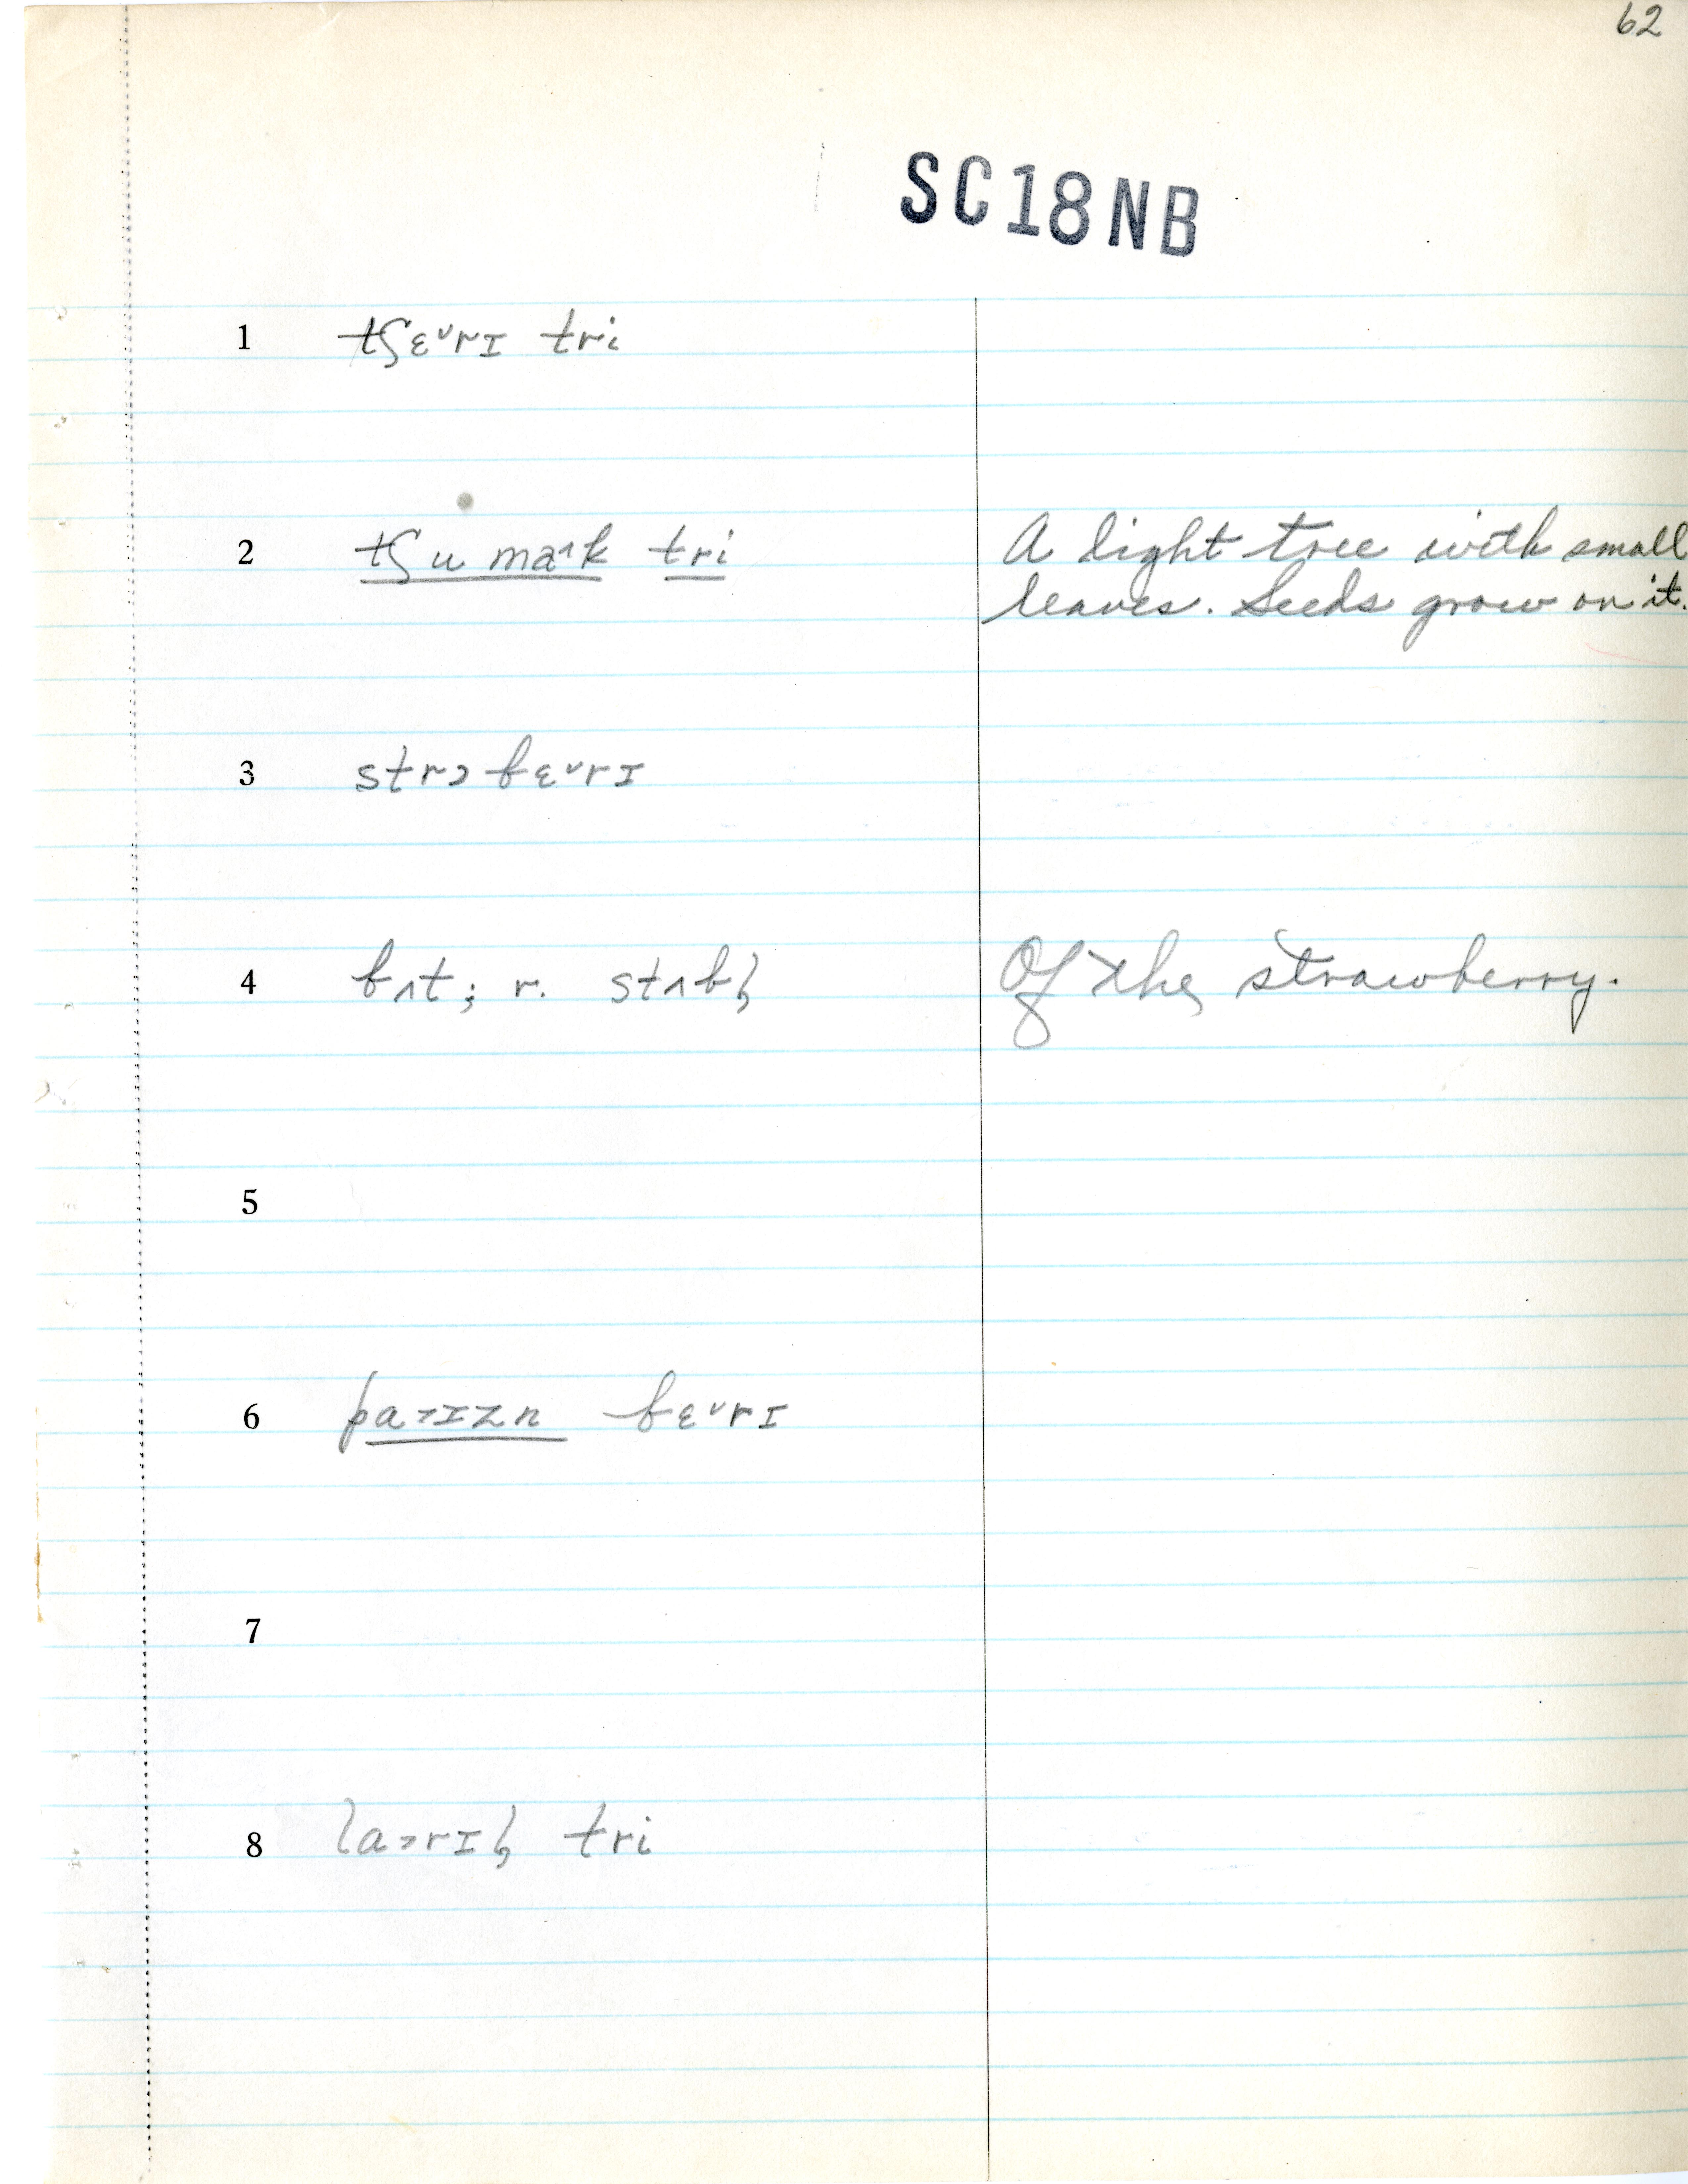 62
SC18NB
1 tʃɛ˅rɪ tri
2 tʃu ma˄k tri A light tree with small
leaves. Seeds grow on it.
3 strɔ bɛ˅rɪ
4 bʌt; r. stʌbḷ Of the strawberry.
5
6 pa˃ɪzn bɛ˅rɪ
7
8 la˃rɪḷ tri